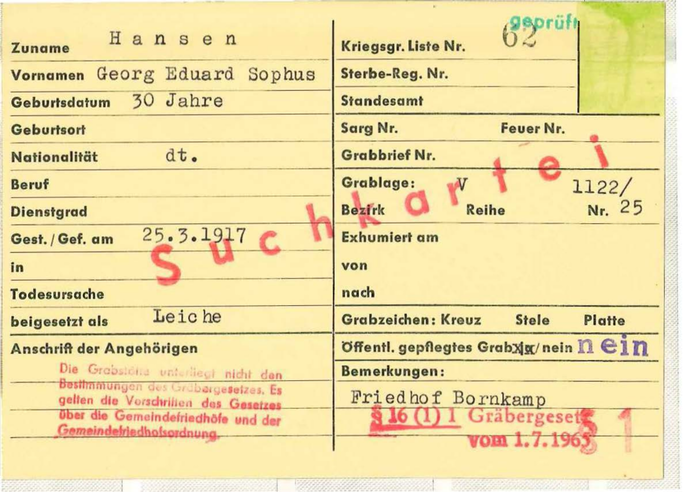 geprüft
Zuname Hansen
Vornamen Georg Eduard Sophus
Geburtsdatum 30 Jahre
Geburtsort
Nationalität dt.
Beruf
Dienstgrad
Gest./Gef. am 25.3.1917
in
Todesursache
beigesetzt als Leiche
Anschrift der Angehörigen
Die Grabstätte unterliegt nicht den
Bestimmungen des Gräbergesetzes. Es
gelten die Vorschriften des Gesetzes
über die Gemeindefriedhöfe und der
Gemeindefriedhofsordnung.
Suchkartei
Kriegsgr. Liste Nr. 62
Sterbe-Reg. Nr.
Standesamt
Sarg Nr. Feuer Nr.
Grabbrief Nr.
Grablage: V 1122/
Bezirk Reihe Nr. 25
Exhumiert am
von
nach
Grabzeichen: Kreuz Stele Platte
Öffentl. gepflegtes Grab /nein nein
Bemerkungen:
Friedhof Bornkamp
§ 16 (1) 1 Gräbergesetz
vom 1.7.1965
§ 1